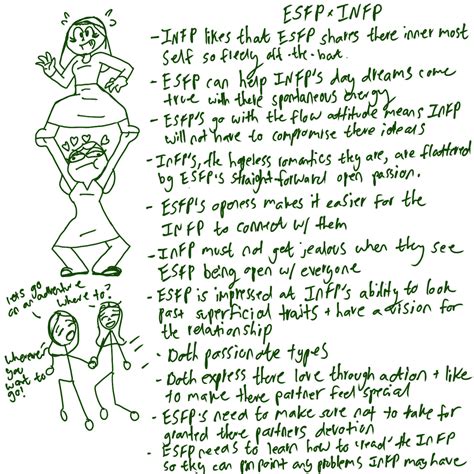 ESFP x INFP
- INFP likes that ESFP shares there inner most
self so freely off-the-bat.
- ESFP can help INFP's day dreams come
true with there spontaneous energy
- ESFP's go with the flow attitude means INFP
will not have to compromise there ideals
- INFP's, the hopeless romantics they are, are flattered
by ESFP's straight forward open passion.
- ESFP's openess makes it easier for the
INFP to connect w/ them
- INFP must not get jealous when they see
ESFP being open w/ everyone
- ESFP is impressed at INFP's ability to look
past superficial traits + have a vision for
the relationship
- Both passionate types
- Both express there love through action + like
to make there partner feel special
- ESFP's need to make sure not to take for
granted there partners devotion
- ESFP needs to learn how to 'read' the INFP
so they can pin point any problems INFP may have
lets go
on an adventure
where to?
wherever
you
want to
go!